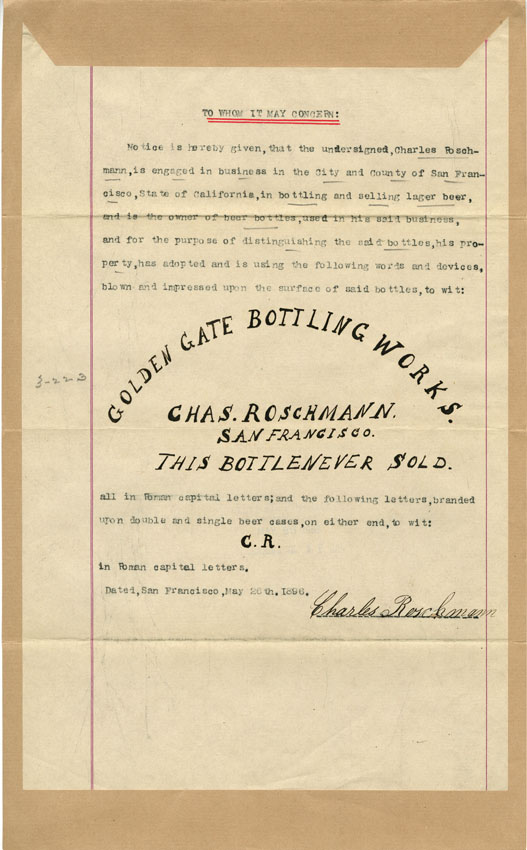 TO WHOM IT MAY CONCERN:
Notice is hereby given,that the undersigned,Charles Rosch-
mann,is engaged in business in the City and County of San Fran-
cisco,State of California,in bottling and selling lager beer,
and is the owner of beer bottles,used in his said business,
and for the purpose of distinguishing the said bottles,his pro-
perty,has adopted and is using the following words and devices,
blown and impressed upon the surface of said bottles,to wit:
GOLDEN GATE BOTTLING WORKS.
3-223
CHAS. ROSCHMANN.
SAN FRANCISCO.
THIS BOTTLENEVER SOLD.
all in Roman capital letters;and the following letters,branded
upon double and single beer cases,on either end,to wit:
C.R.
in Roman capital letters.
Dated,San Francisco,May 26th.1896.
Charles Roschmann